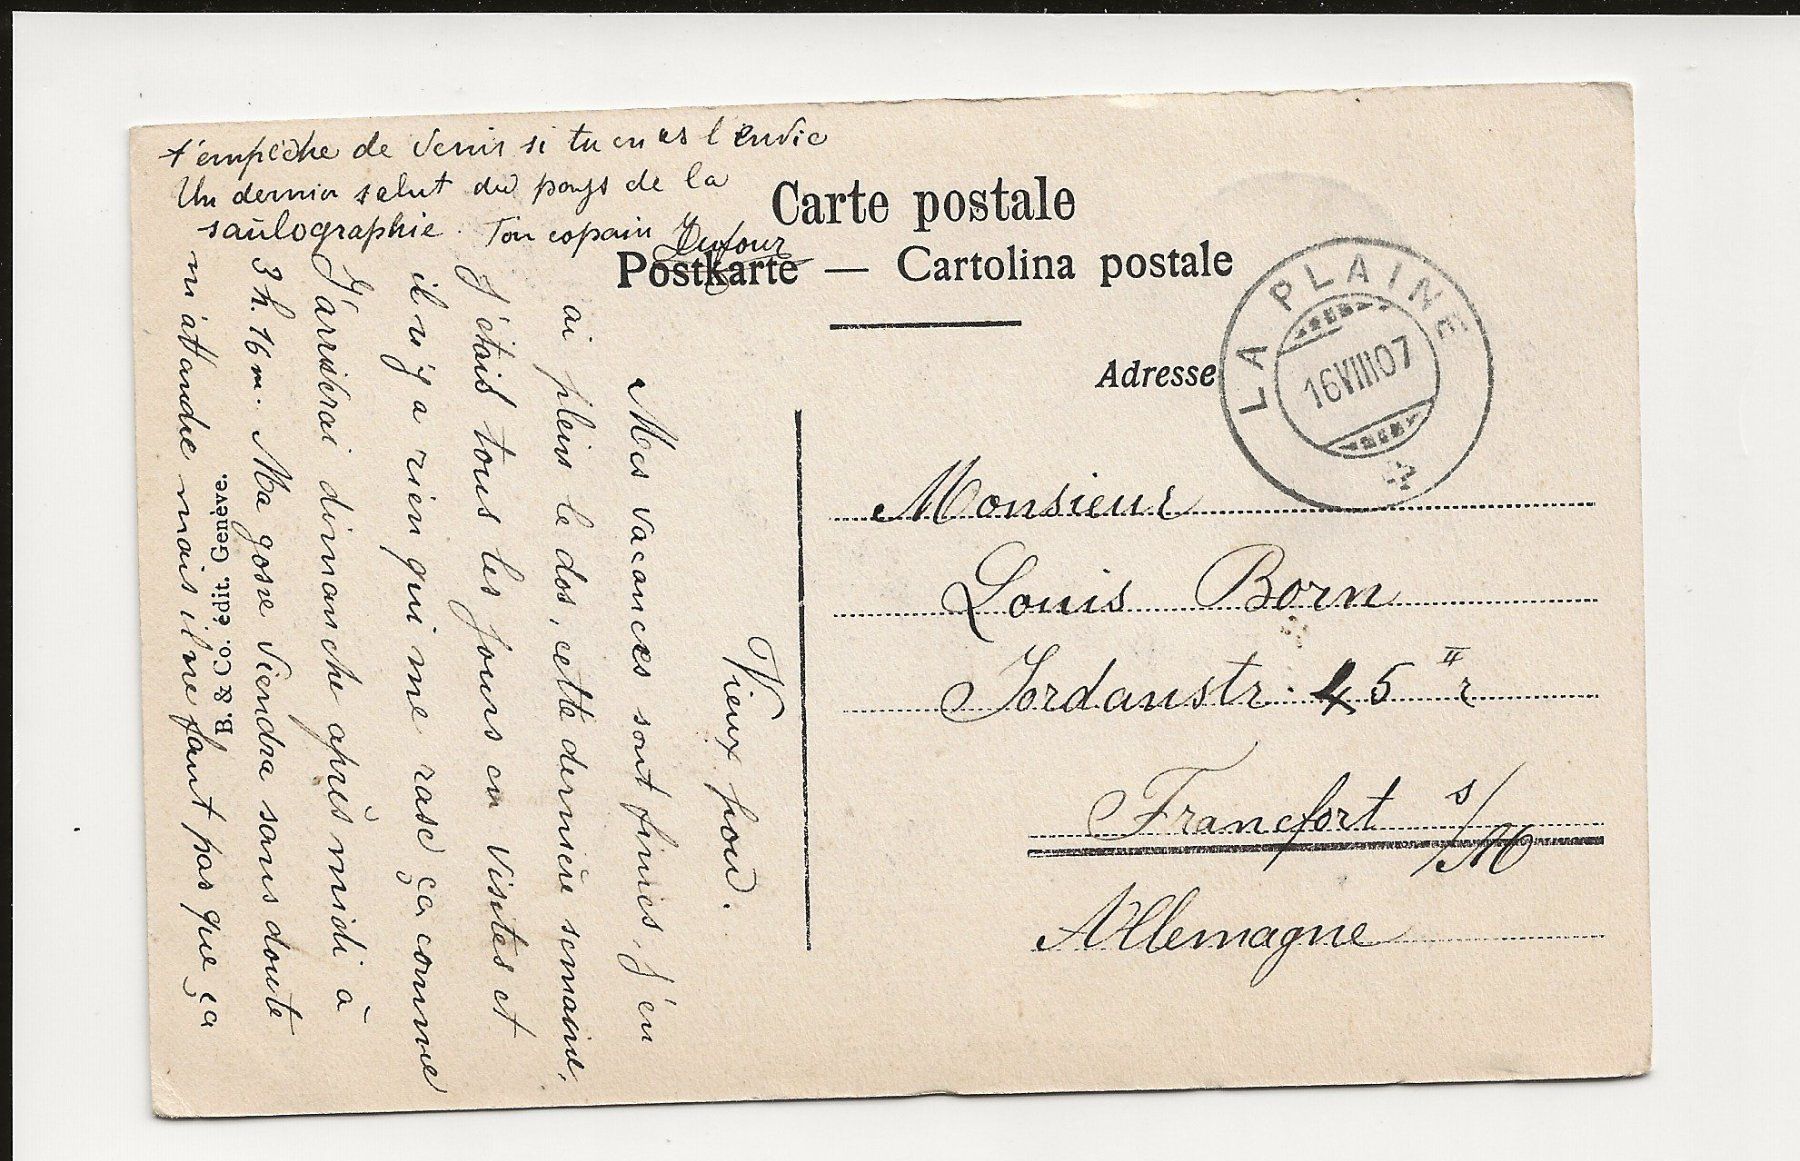 Carte postale
Postkarte — Cartolina postale
Adresse
LA PLAINE
16 VIII 07
Monsieur
Louis Born
Jordanstr. 45 II r
Francfort s/M
Allemagne
Vieux
Mes vacances sont finies, j'en
ai pleins le dos, cette dernière semaine,
J'étais tous les jours en visites et
il n'y a rien qui me rase ça comme
J'arriverai dimanche après midi à
3 h. 16 m. Ma gosse viendra sans doute
m'attandre mais il ne faut pas que ça
t'empêche de venir si tu en as l'envie
Un dernier salut du pays de la
saûlographie. Ton copain Dufour
B. & Co. édit. Genève.